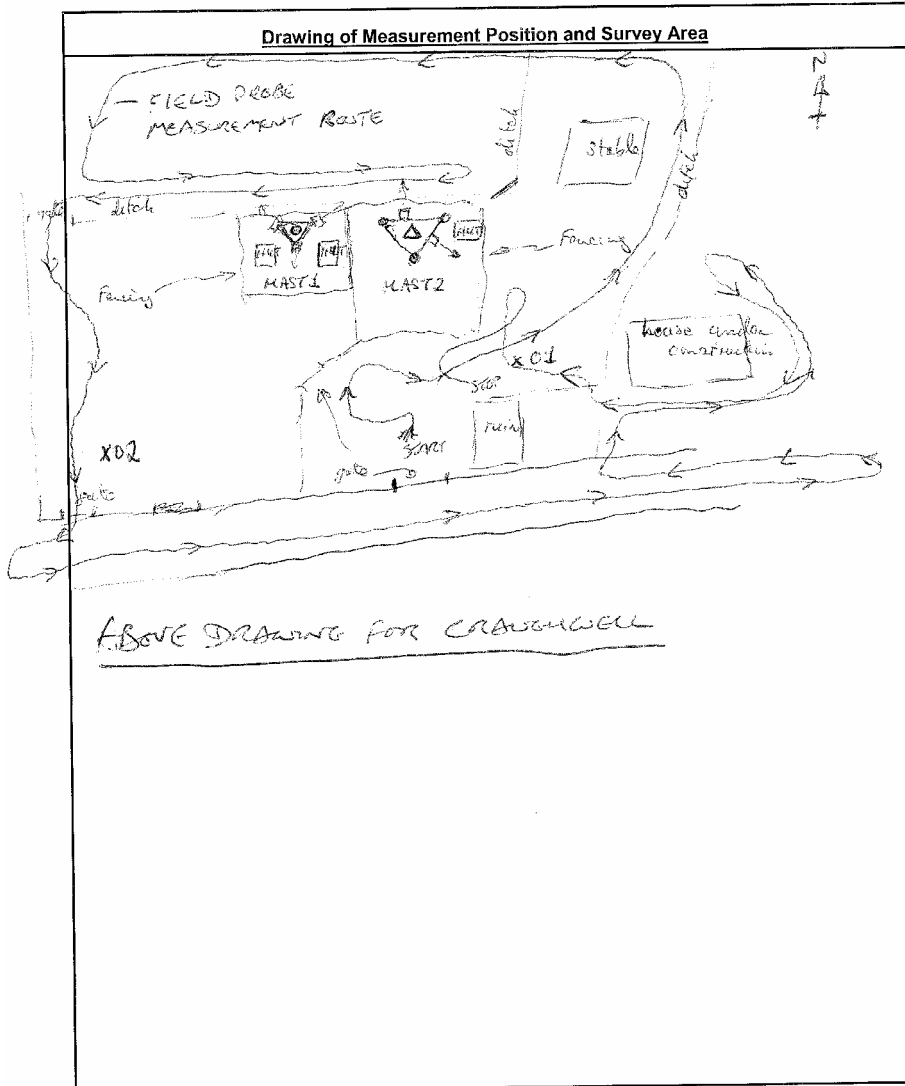 Drawing of Measurement Position and Survey Area
N
FIELD PROBE
MEASUREMENT ROUTE
ditch
stable
ditch
gate
ditch
HUT
HUT
HUT
Fencing
MAST1
MAST2
Fencing
house under
construction
X01
STOP
ruin
START
gate
X02
gate
ABOVE DRAWING FOR CRAUGHWELL